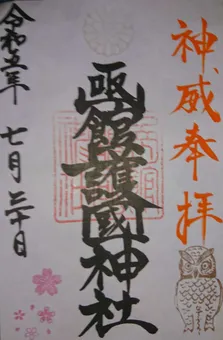 神威奉拝
函館護國神社
令和五年 七月三十日